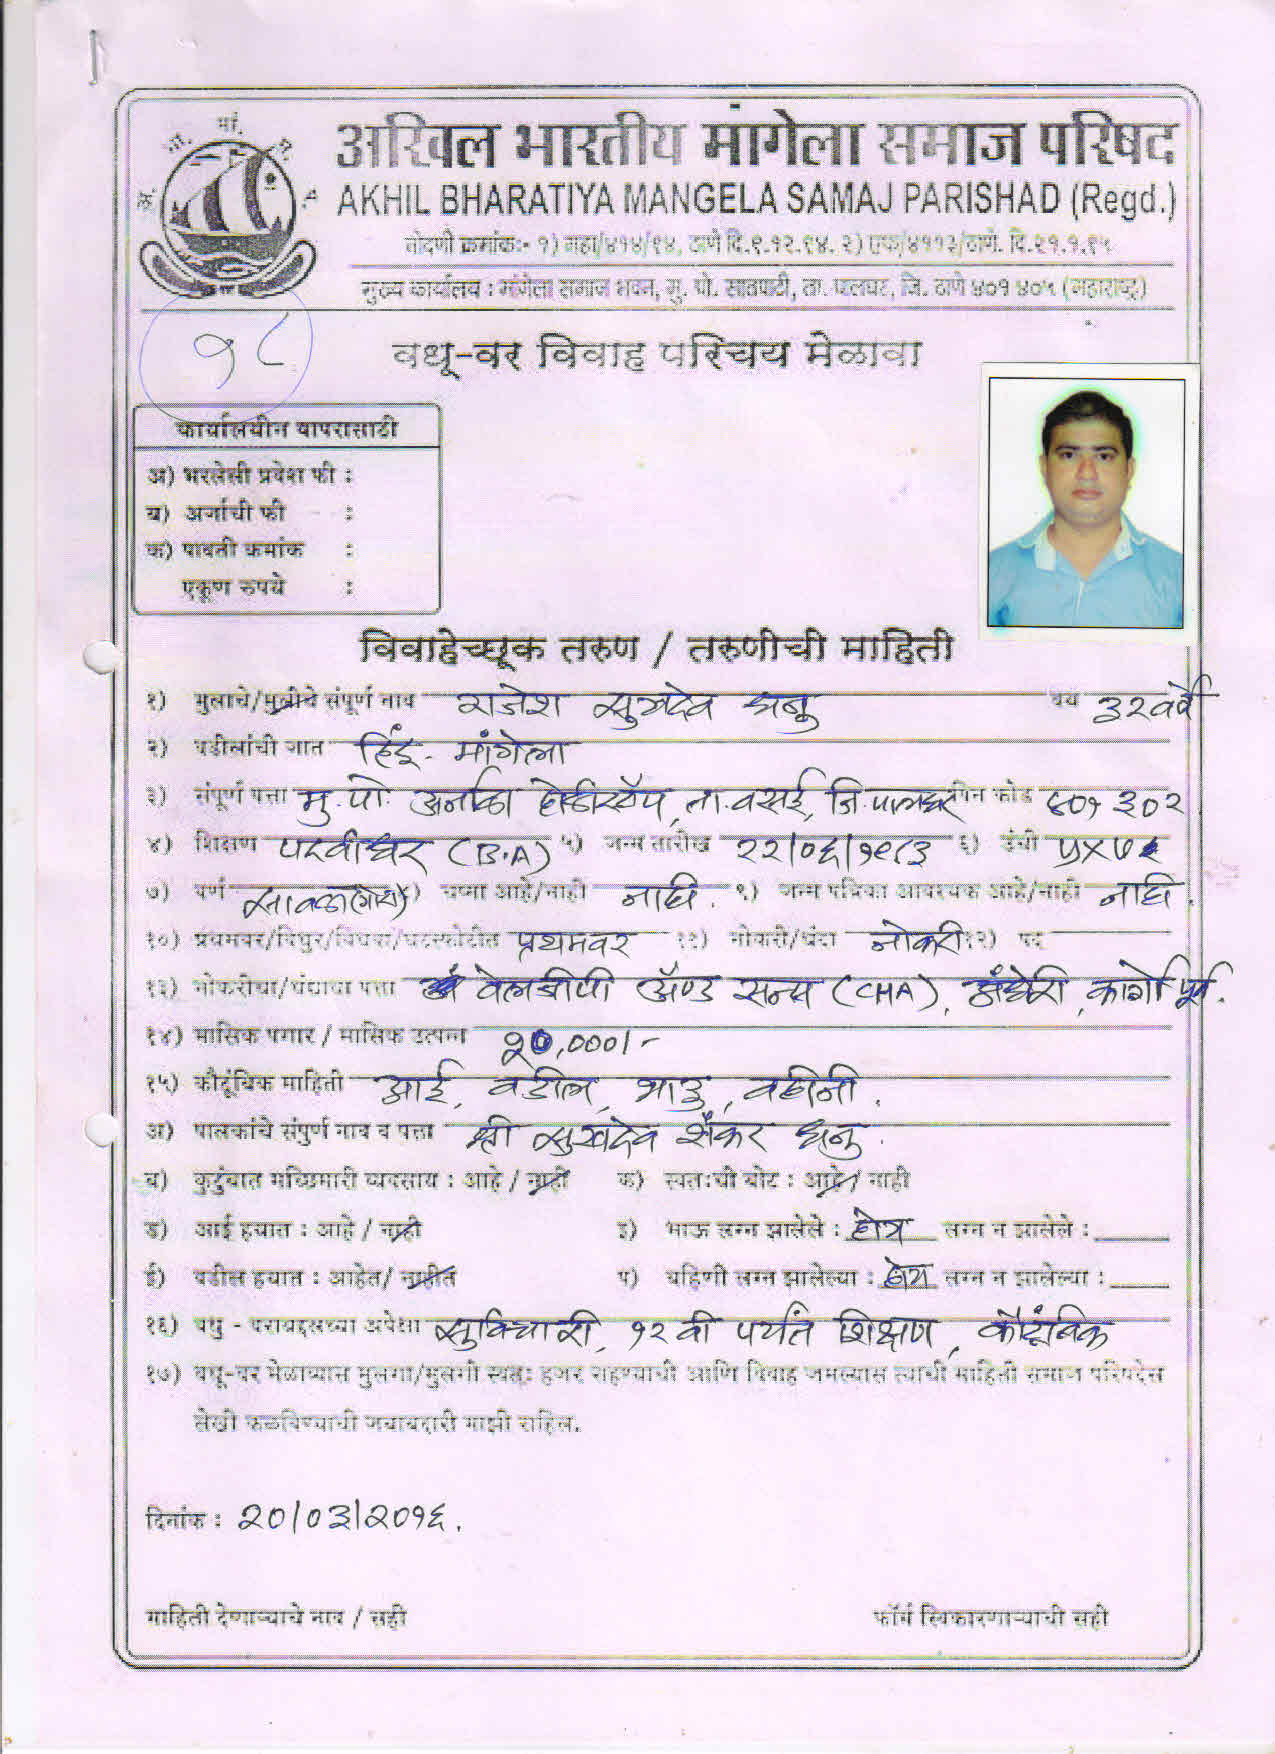 अ. भा. मां. स. प.
अखिल भारतीय मांगेला समाज परिषद
AKHIL BHARATIYA MANGELA SAMAJ PARISHAD (Regd.)
नोदणी क्रमांक:- १) महा/४१४/९४, ठाणे दि.९.१२.९४. २) एफ/४११३/ठाणे. दि.२१.१.९५
मुख्य कार्यालय : मांगेला समाज भवन, मु. पो. सातपाटी, ता. पालघर, जि. ठाणे ४०१ ४०५ (महाराष्ट्र)
१८
वधू-वर विवाह परिचय मेळावा
कार्यालयीन वापरासाठी
अ) भरलेली प्रवेश फी :
ब) अर्जाची फी :
क) पावती क्रमांक :
एकूण रुपये :
विवाहेच्छूक तरुण / तरुणीची माहिती
१) मुलाचे/मुलीचे संपूर्ण नाव राजेश सुखदेव धनु वय ३२वर्षे
२) वडीलांची जात हिंदू - मांगेला
३) संपूर्ण पत्ता मु. पो. अर्नाळा ता. वसई, जि. पालघर पिन कोड ४०१ ३०२
४) शिक्षण पदवीधर (B.A) ५) जन्म तारीख २२/०६/१९८३ ६) उंची
७) वर्ण सावळा(गोरा) ८) चष्मा आहे/नाही नाही. ९) जन्म पत्रिका आवश्यक आहे/नाही नाही.
१०) प्रथमवर/विधुर/विधवा/घटस्फोटीत प्रथमवर ११) नोकरी/धंदा नोकरी १२) पद
१३) नोकरीचा/धंद्याचा पत्ता वेलजीपी अ‍ॅण्ड सन्स (CHA), अंधेरी, कार्गो पूर्व.
१४) मासिक पगार / मासिक उत्पन्न २०,०००/-
१५) कौटूंबिक माहिती आई, वडील, भाउ, वहीनी.
अ) पालकांचे संपुर्ण नाव व पत्ता श्री सुखदेव शंकर धनु.
ब) कुटुंबात मच्छिमारी व्यवसाय : आहे / नाही क) स्वतःची बोट : आहे / नाही
ड) आई हयात : आहे / नाही इ) भाऊ लग्न झालेले : होय लग्न न झालेले :
ई) वडील हयात : आहेत/ नाहीत प) बहिणी लग्न झालेल्या : होय लग्न न झालेल्या :
१६) वधु - वराबद्दलच्या अपेक्षा सुविचारी, १२ वी पर्यंत शिक्षण, कौटूंबिक
१७) वधू-वर मेळाव्यात मुलगा/मुलगी स्वतः हजर राहण्याची आणि विवाह जमल्यास त्याची माहिती समाज परिषदेस
लेखी कळविण्याची जबाबदारी माझी राहिल.
दिनांक : २०/०३/२०१६.
माहिती देणाऱ्याचे नाव / सही फॉर्म स्विकारणाऱ्याची सही